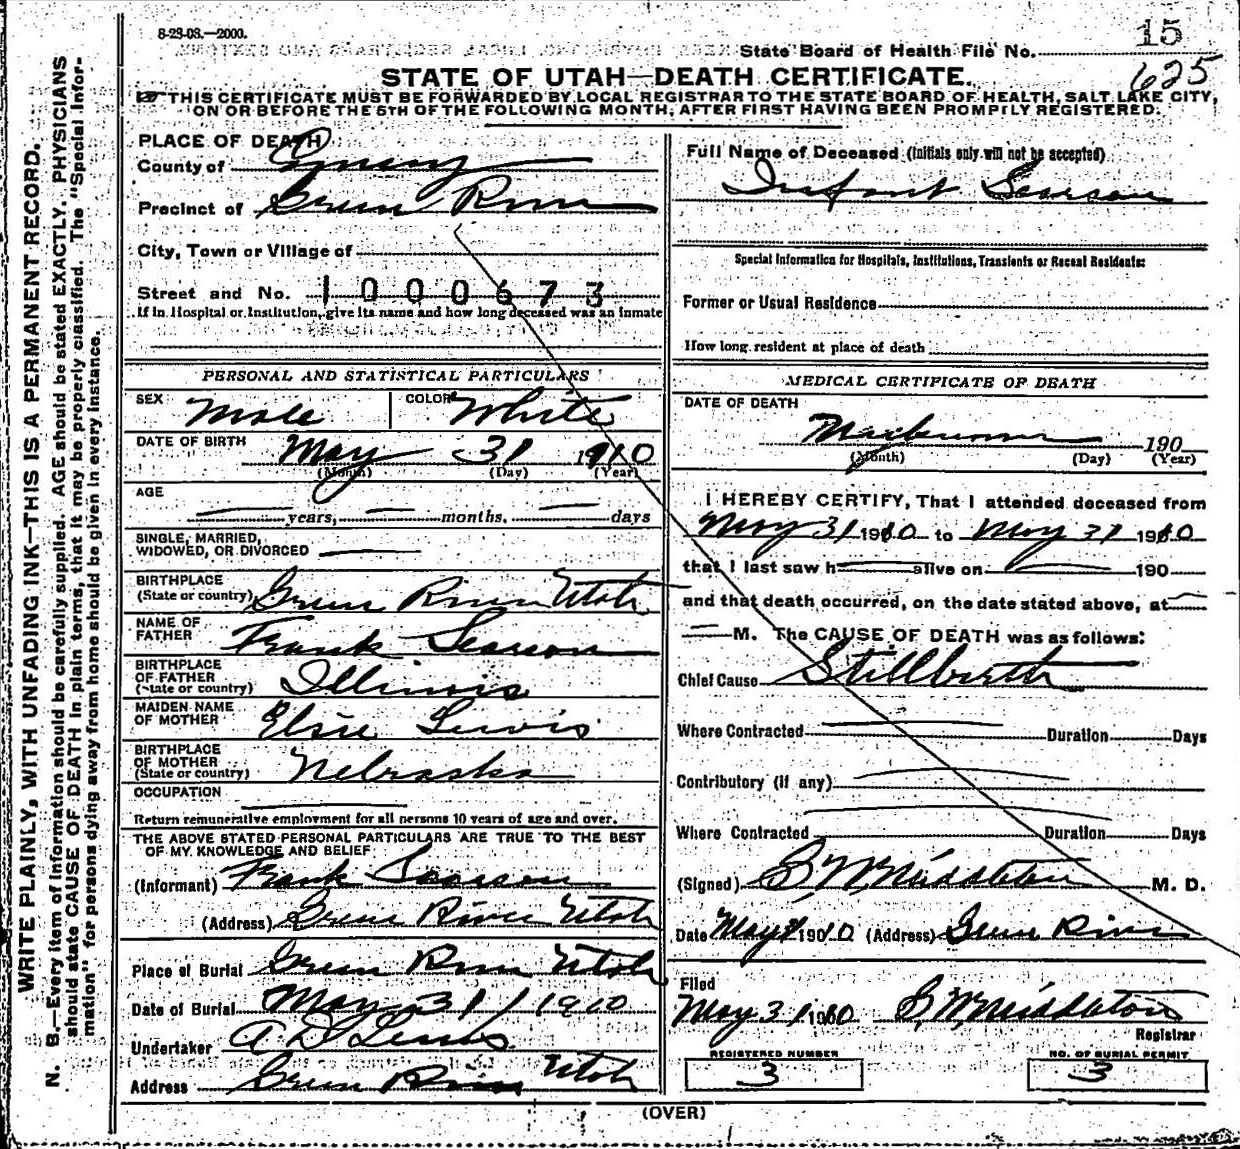 8-23-08.—2000.
15
State Board of Health File No.
625
STATE OF UTAH—DEATH CERTIFICATE.
THIS CERTIFICATE MUST BE FORWARDED BY LOCAL REGISTRAR TO THE STATE BOARD OF HEALTH, SALT LAKE CITY,
ON OR BEFORE THE 5TH OF THE FOLLOWING MONTH, AFTER FIRST HAVING BEEN PROMPTLY REGISTERED.
WRITE PLAINLY, WITH UNFADING INK—THIS IS A PERMANENT RECORD.
N. B.—Every item of information should be carefully supplied. AGE should be stated EXACTLY. PHYSICIANS
should state CAUSE OF DEATH in plain terms, that it may be properly classified. The "Special Infor-
mation" for persons dying away from home should be given in every instance.
PLACE OF DEATH
County of Emery
Precinct of Green River
City, Town or Village of
Street and No. 1000673
If in Hospital or Institution, give its name and how long deceased was an inmate
PERSONAL AND STATISTICAL PARTICULARS
SEX Male COLOR White
DATE OF BIRTH May 31 1910
(Month) (Day) (Year)
AGE
years, months, days
SINGLE, MARRIED,
WIDOWED, OR DIVORCED
BIRTHPLACE
(State or country) Green River Utah
NAME OF
FATHER Frank Searson
BIRTHPLACE
OF FATHER
(State or country) Illinois
MAIDEN NAME
OF MOTHER Elsie Lewis
BIRTHPLACE
OF MOTHER
(State or country) Nebraska
OCCUPATION
Return remunerative employment for all persons 10 years of age and over.
THE ABOVE STATED PERSONAL PARTICULARS ARE TRUE TO THE BEST
OF MY KNOWLEDGE AND BELIEF
(Informant) Frank Searson
(Address) Green River Utah
Place of Burial Green River Utah
Date of Burial May 31 1910
Undertaker A D Lewis
Address Green River Utah
Full Name of Deceased (Initials only will not be accepted)
Infant Searson
Special Information for Hospitals, Institutions, Transients or Recent Residents:
Former or Usual Residence
How long resident at place of death
MEDICAL CERTIFICATE OF DEATH
DATE OF DEATH
190
(Month) (Day) (Year)
I HEREBY CERTIFY, That I attended deceased from
May 31 1910 to May 31 1910
that I last saw h alive on 190
and that death occurred, on the date stated above, at
M. The CAUSE OF DEATH was as follows:
Chief Cause Stillbirth
Where Contracted Duration Days
Contributory (if any)
Where Contracted Duration Days
(Signed) S. W. Middleton M. D.
Date May 31 1910 (Address) Green River
Filed
May 31 1910 S. W. Middleton
Registrar
REGISTERED NUMBER
3
NO. OF BURIAL PERMIT
3
(OVER)